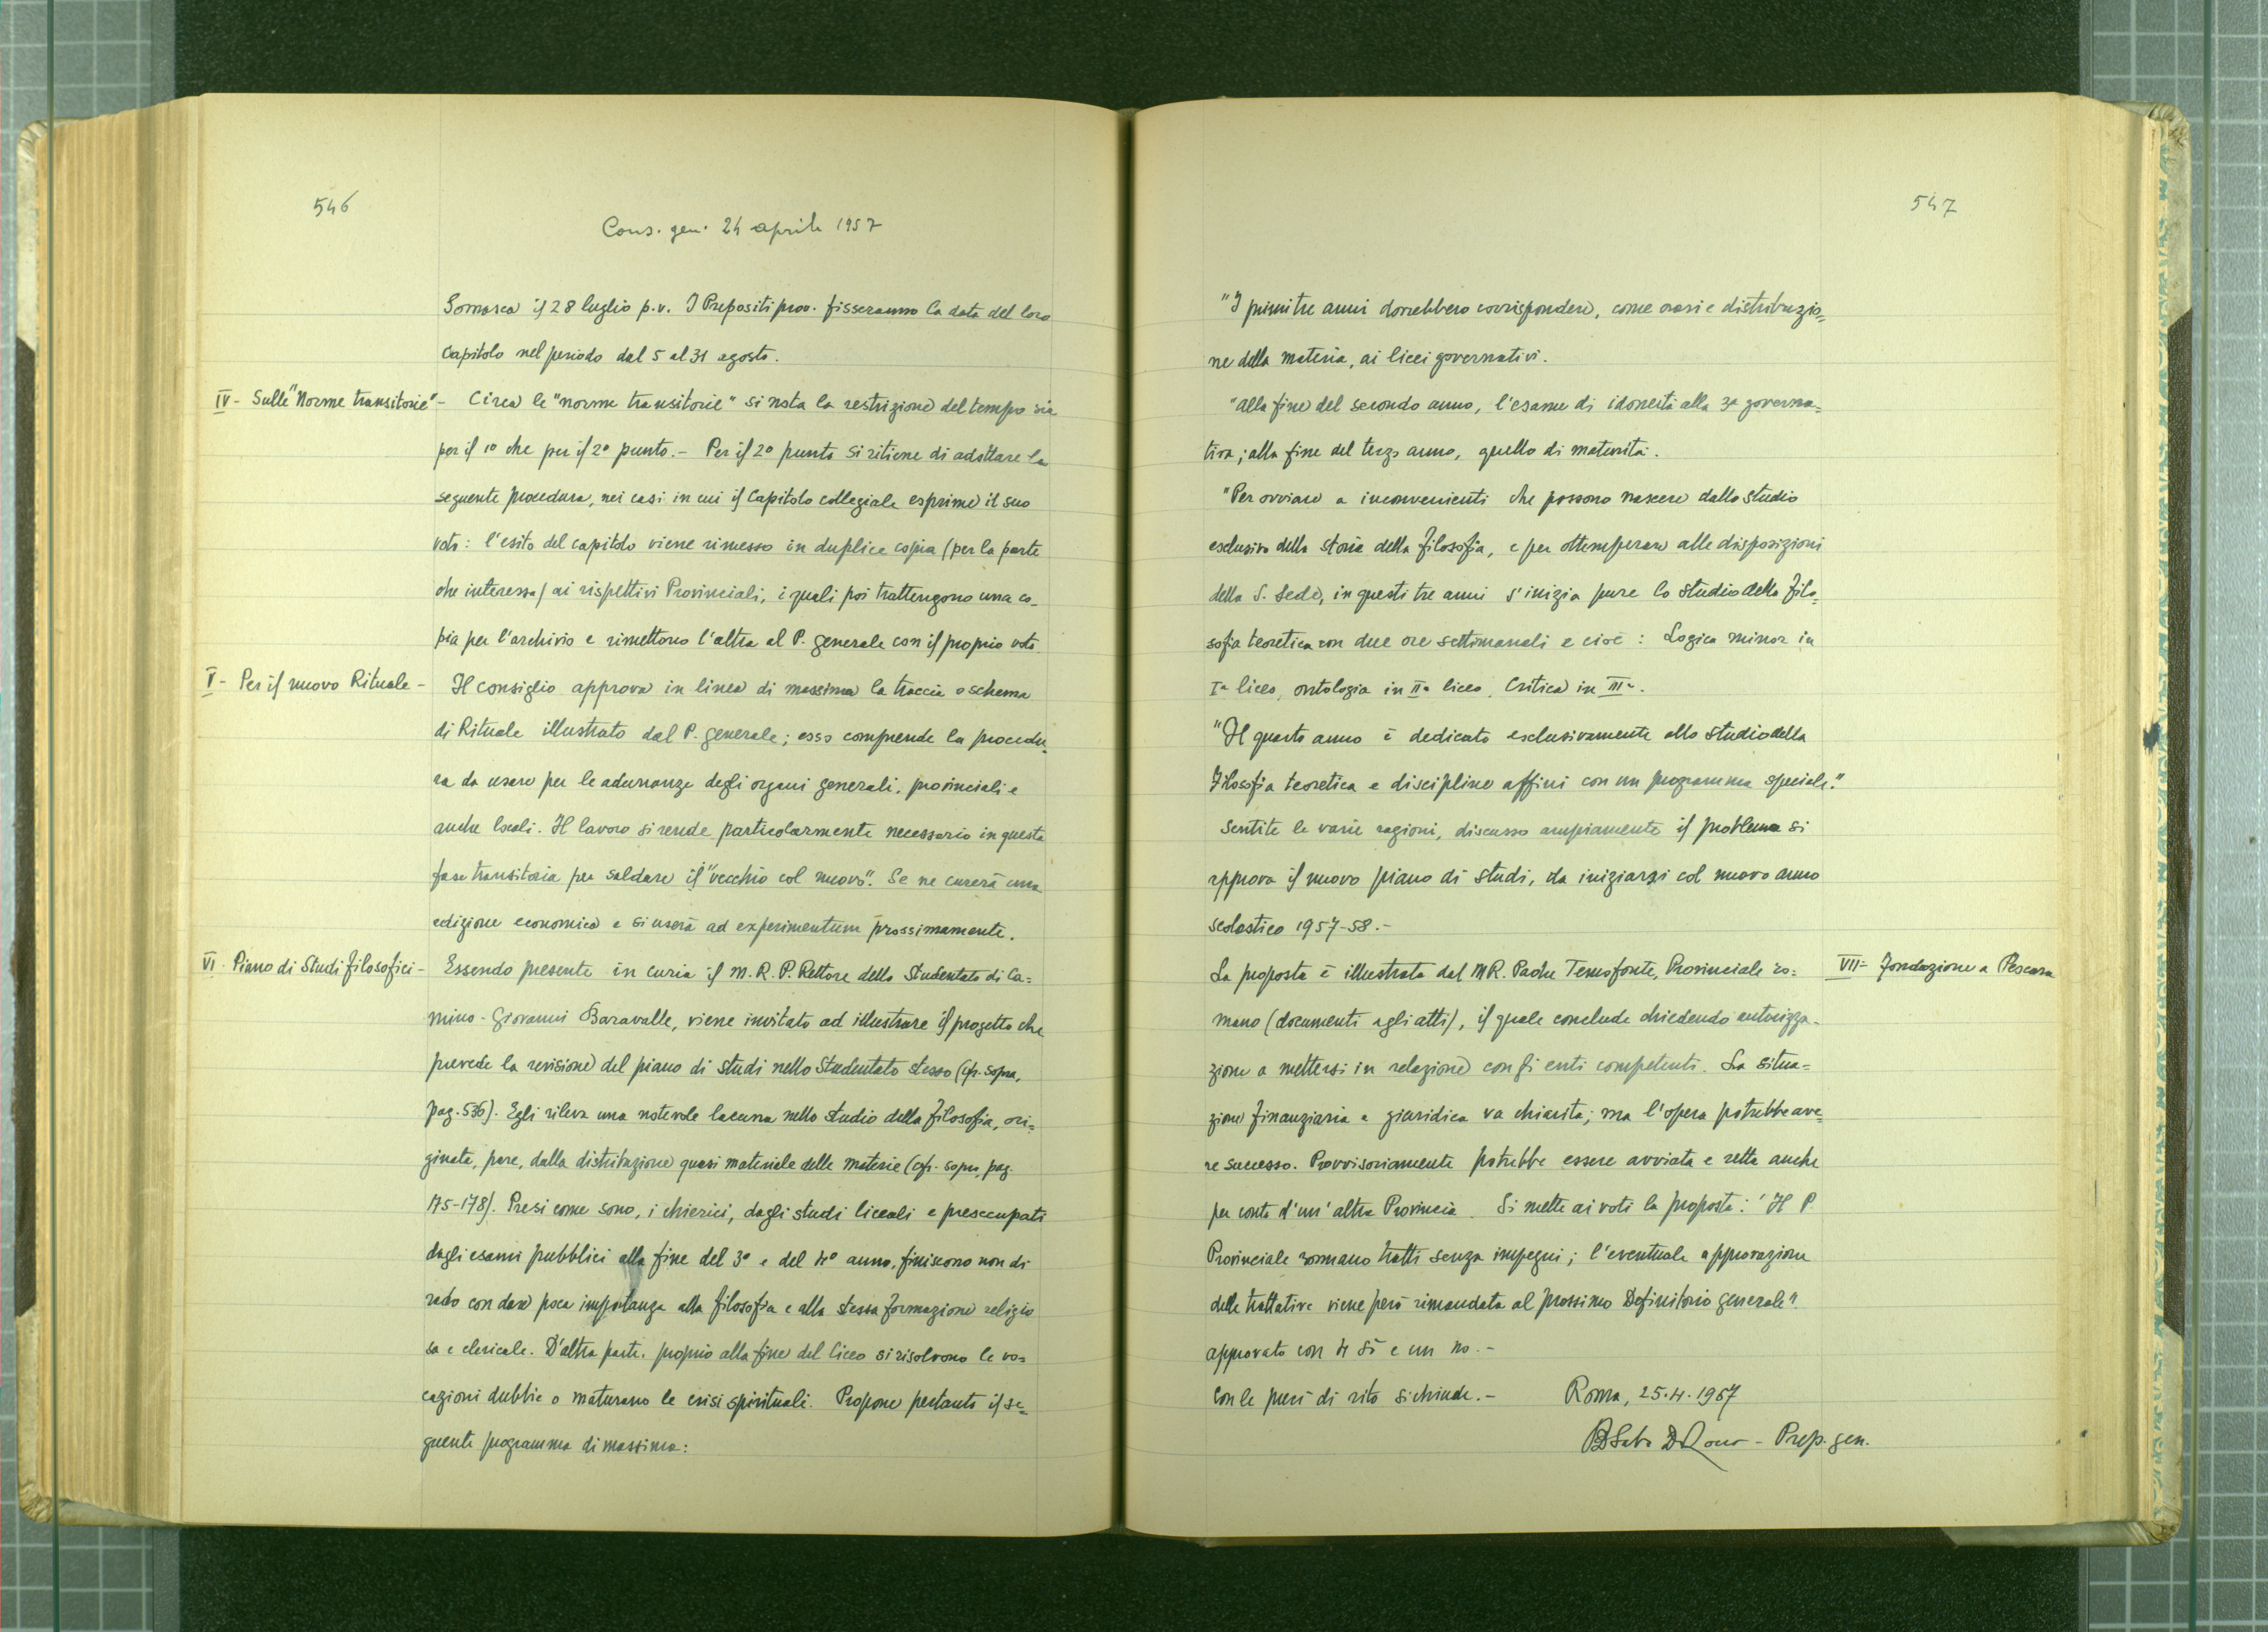 546
Cons. gen. 24 aprile 1957
Somasca il 28 luglio p.v. I Prepositi prov. fisseranno la data del loro
Capitolo nel periodo dal 5 al 31 agosto.
IV - Sulle "Norme transitorie" - Circa le "norme transitorie" si nota la restrizione del tempo sia
per il 1º che per il 2º punto. - Per il 2º punto si ritiene di adottare la
seguente procedura, nei casi in cui il Capitolo collegiale esprime il suo
voto: l'esito del capitolo viene rimesso in duplice copia (per la parte
che interessa) ai rispettivi Provinciali, i quali poi trattengono una co-
pia per l'archivio e rimettono l'altra al P. generale con il proprio voto.
V - Per il nuovo Rituale - Il consiglio approva in linea di massima la traccia o schema
di Rituale illustrato dal P. generale; esso comprende la procedu-
ra da usare per le adunanze degli organi generali, provinciali e
anche locali. Il lavoro si rende particolarmente necessario in questa
fase transitoria per saldare il "vecchio col nuovo". Se ne curerà una
edizione economica e si userà ad experimentum prossimamente.
VI - Piano di Studi filosofici - Essendo presente in curia il M. R. P. Rettore dello Studentato di Ca=
mino - Giovanni Baravalle, viene invitato ad illustrare il progetto che
prevede la revisione del piano di studi nello Studentato stesso (cfr. sopra,
pag. 536). Egli rileva una notevole lacuna nello studio della filosofia, ori=
ginata, pare, dalla distribuzione quasi materiale delle materie (cfr. sopra, pag.
175-178). Presi come sono, i chierici, dagli studi liceali e preoccupati
dagli esami pubblici alla fine del 3º e del 4º anno, finiscono non di
rado con dare poca importanza alla filosofia e alla stessa formazione religio
sa e clericale. D'altra parte, proprio alla fine del liceo si risolvono le vo=
cazioni dubbie o maturano le crisi spirituali. Propone pertanto il se=
guente programma di massima:
547
"I primi tre anni dovrebbero corrispondere, come orari e distribuzio=
ne della materia, ai licei governativi.
"Alla fine del secondo anno, l'esame di idoneità alla 3ª governa=
tiva; alla fine del terzo anno, quello di maturità.
"Per ovviare a inconvenienti che possono nascere dallo studio
esclusivo della storia della filosofia, e per ottemperare alle disposizioni
della S. Sede, in questi tre anni s'inizia pure lo studio della filo=
sofia teoretica con due ore settimanali e cioè: Logica minor in
Iª liceo, ontologia in IIª liceo, Critica in IIIª.
"Il quarto anno è dedicato esclusivamente allo studio della
Filosofia teoretica e discipline affini con un programma speciale."
Sentite le varie ragioni, discusso ampiamente il problema si
approva il nuovo piano di studi, da iniziarsi col nuovo anno
scolastico 1957-58. -
La proposta è illustrata dal M.R. Padre Temofonte, Provinciale ro= VII - Fondazione a Pescara
mano (documenti agli atti), il quale conclude chiedendo autorizza-
zione a mettersi in relazione con gli enti competenti. La situa=
zione finanziaria e giuridica va chiarita; ma l'opera potrebbe ave=
re successo. Provvisoriamente potrebbe essere avviata e retta anche
per conto d'un'altra Provincia. Si mette ai voti la proposta: "Il P.
Provinciale romano tratti senza impegni; l'eventuale approvazione
delle trattative viene però rimandata al prossimo Definitorio generale".
approvato con 4 sì e un no. -
Con le preci di rito si chiude. - Roma, 25.4.1957
Prep. gen.